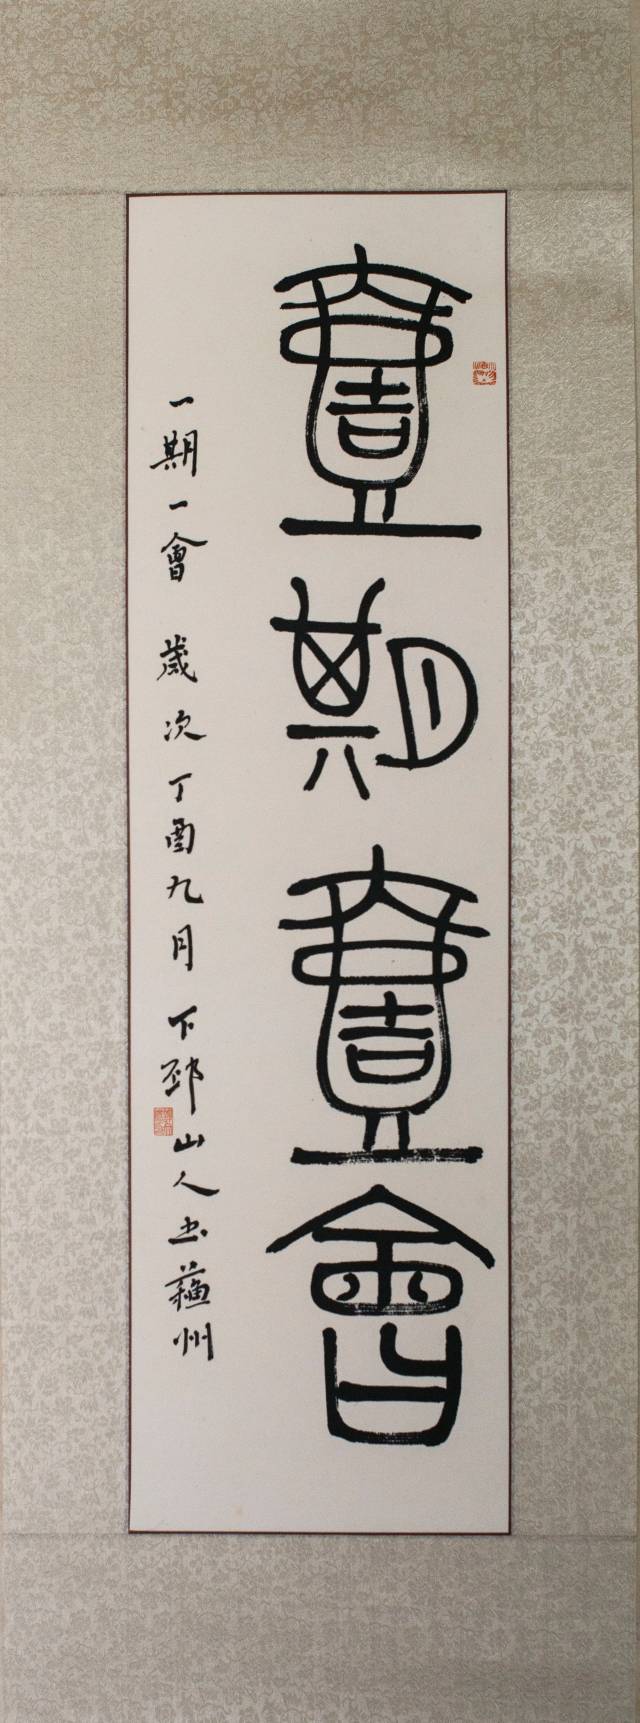 壹期壹會
一期一會 歲次丁酉九月 下邳山人书蘓州